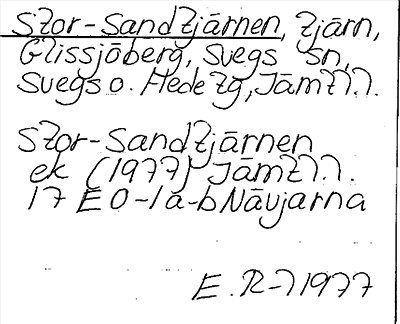 Stor-Sandtjärnen, tjärn,
Glissjöberg, Svegs sn,
Svegs o. Hede tg, Jämtl.l.
Stor-Sandtjärnen
ek (1977) Jämtl.l.
17 E 0-1a-b Nävjarna
E. R-l 1977